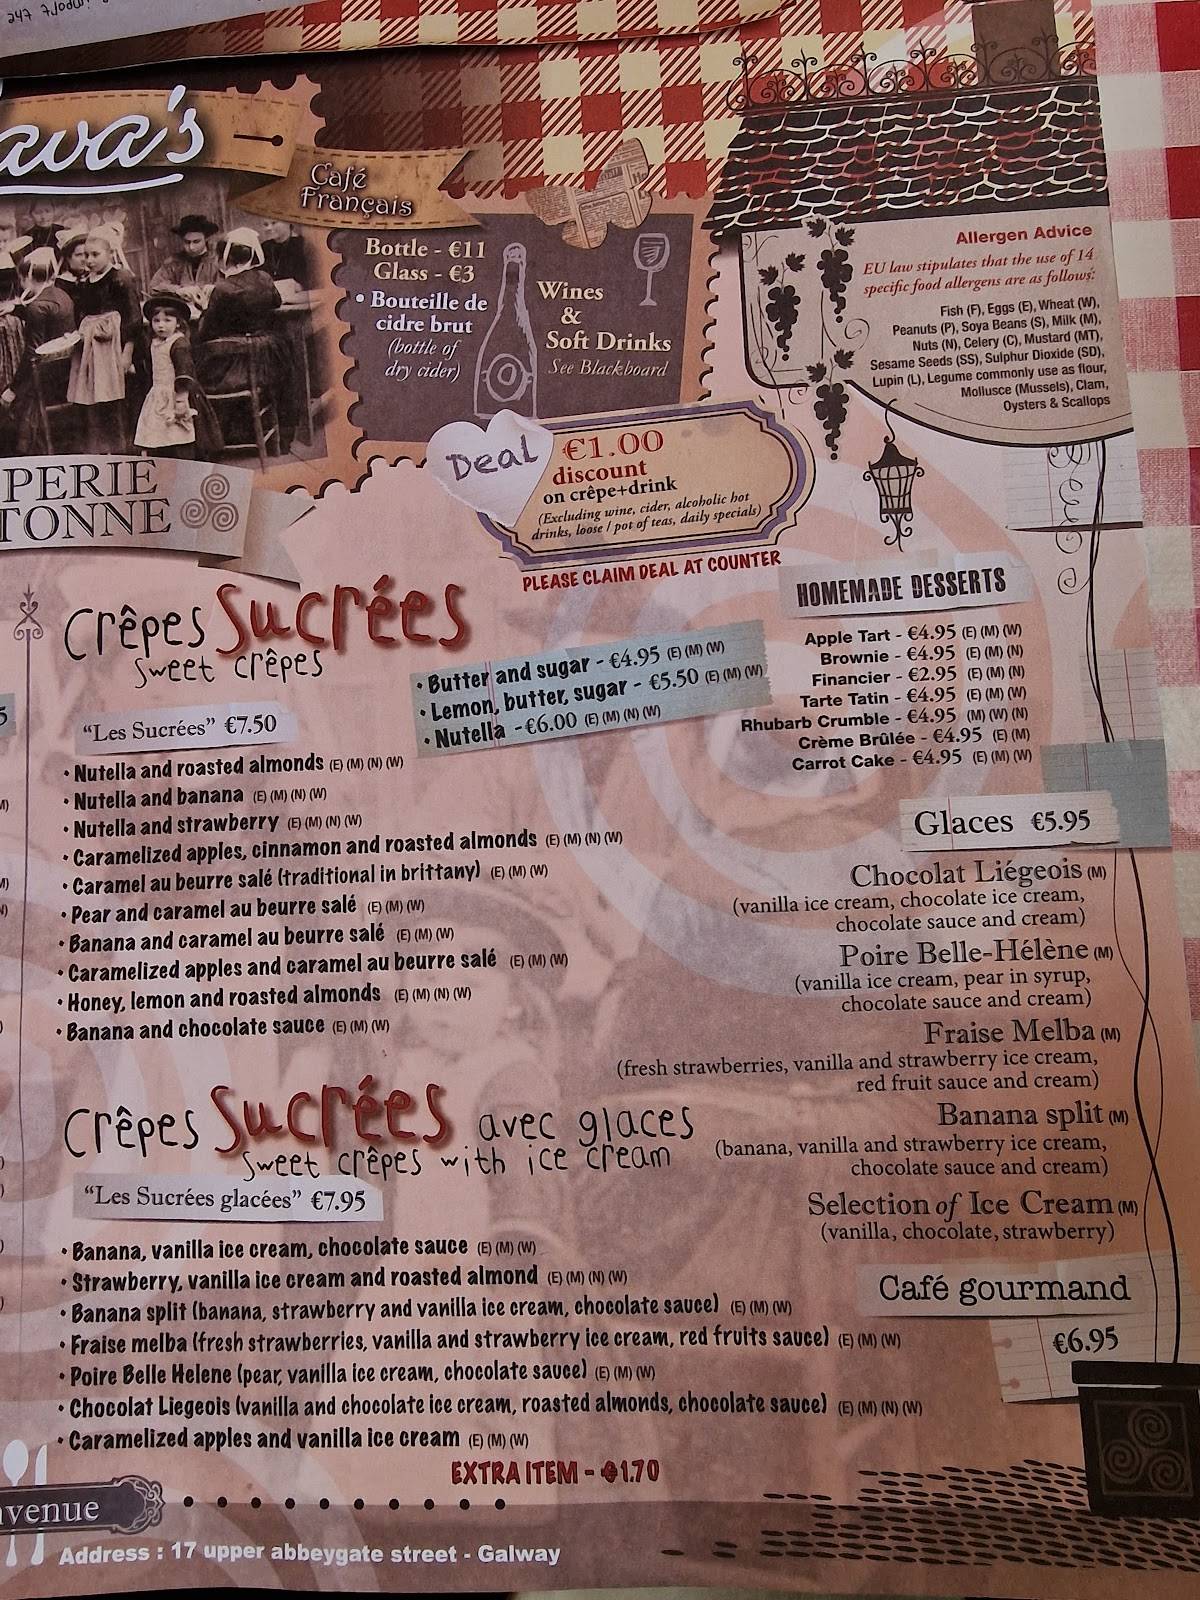 ava's
Café
Français
Bottle - €11
Glass - €3
• Bouteille de
cidre brut
(bottle of
dry cider)
Wines
&
Soft Drinks
See Blackboard
Allergen Advice
EU law stipulates that the use of 14
specific food allergens are as follows:
Fish (F), Eggs (E), Wheat (W),
Peanuts (P), Soya Beans (S), Milk (M),
Nuts (N), Celery (C), Mustard (MT),
Sesame Seeds (SS), Sulphur Dioxide (SD),
Lupin (L), Legume commonly use as flour,
Mollusce (Mussels), Clam,
Oysters & Scallops
Deal
€1.00
discount
on crêpe+drink
(Excluding wine, cider, alcoholic hot
drinks, loose / pot of teas, daily specials)
PLEASE CLAIM DEAL AT COUNTER
PERIE
TONNE
Crêpes Sucrées
sweet crêpes
• Butter and sugar - €4.95 (E) (M) (W)
• Lemon, butter, sugar - €5.50 (E) (M) (W)
• Nutella - €6.00 (E) (M) (N) (W)
"Les Sucrées" €7.50
• Nutella and roasted almonds (E) (M) (N) (W)
• Nutella and banana (E) (M) (N) (W)
• Nutella and strawberry (E) (M) (N) (W)
• Caramelized apples, cinnamon and roasted almonds (E) (M) (N) (W)
• Caramel au beurre salé (traditional in brittany) (E) (M) (W)
• Pear and caramel au beurre salé (E) (M) (W)
• Banana and caramel au beurre salé (E) (M) (W)
• Caramelized apples and caramel au beurre salé (E) (M) (W)
• Honey, lemon and roasted almonds (E) (M) (N) (W)
• Banana and chocolate sauce (E) (M) (W)
HOMEMADE DESSERTS
Apple Tart - €4.95 (E) (M) (W)
Brownie - €4.95 (E) (M) (N)
Financier - €2.95 (E) (M) (N)
Tarte Tatin - €4.95 (E) (M) (W)
Rhubarb Crumble - €4.95 (M) (W) (N)
Crème Brûlée - €4.95 (E) (M)
Carrot Cake - €4.95 (E) (M) (W)
Glaces €5.95
Chocolat Liégeois (M)
(vanilla ice cream, chocolate ice cream,
chocolate sauce and cream)
Poire Belle-Hélène (M)
(vanilla ice cream, pear in syrup,
chocolate sauce and cream)
Fraise Melba (M)
(fresh strawberries, vanilla and strawberry ice cream,
red fruit sauce and cream)
Banana split (M)
(banana, vanilla and strawberry ice cream,
chocolate sauce and cream)
Selection of Ice Cream (M)
(vanilla, chocolate, strawberry)
Café gourmand
€6.95
Crêpes Sucrées avec glaces
sweet crêpes with ice cream
"Les Sucrées glacées" €7.95
• Banana, vanilla ice cream, chocolate sauce (E) (M) (W)
• Strawberry, vanilla ice cream and roasted almond (E) (M) (N) (W)
• Banana split (banana, strawberry and vanilla ice cream, chocolate sauce) (E) (M) (W)
• Fraise melba (fresh strawberries, vanilla and strawberry ice cream, red fruits sauce) (E) (M) (W)
• Poire Belle Helene (pear, vanilla ice cream, chocolate sauce) (E) (M) (W)
• Chocolat Liegeois (vanilla and chocolate ice cream, roasted almonds, chocolate sauce) (E) (M) (N) (W)
• Caramelized apples and vanilla ice cream (E) (M) (W)
EXTRA ITEM - €1.70
venue
Address : 17 upper abbeygate street - Galway